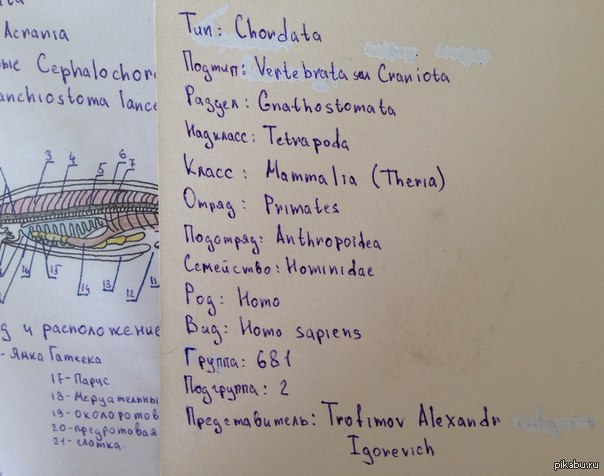 Acrania
Cephalochor
anchiostoma lance
3 4 5 6 7
16 15 14 13 12 11
д и расположение
- Ямка Гатчека
17- Парус
18- Мерцательны
19- околоротов
20- предротовая
21- глотка.
Тип: Chordata
Подтип: Vertebrata seu Craniota
Раздел: Gnathostomata
Надкласс: Tetrapoda
Класс: Mammalia (Theria)
Отряд: Primates
Подотряд: Anthropoidea
Семейство: Hominidae
Род: Homo
Вид: Homo sapiens
Группа: 681
Подгруппа: 2
Представитель: Trofimov Alexandr
Igorevich
pikabu.ru